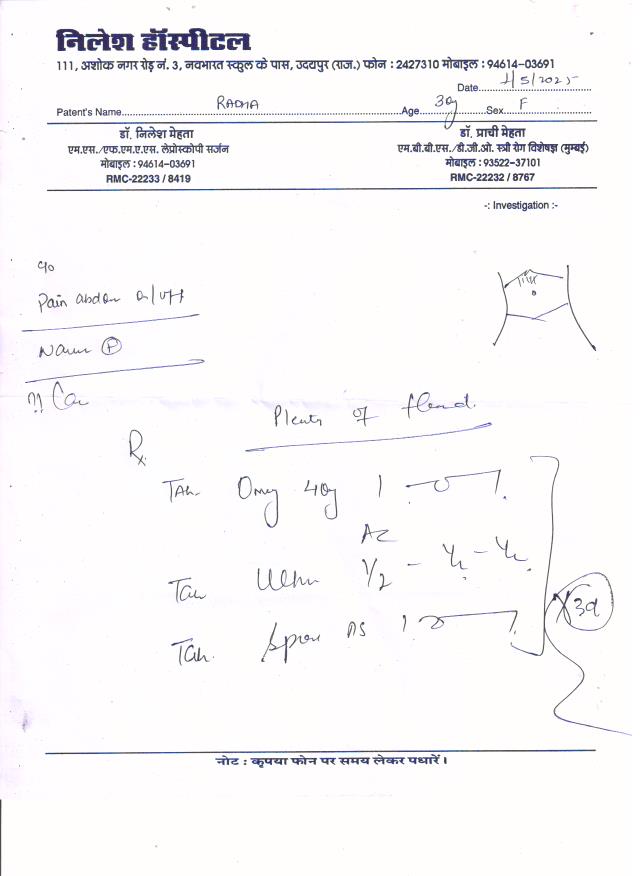 निलेश हॉस्पीटल
111, अशोक नगर रोड़ नं. 3, नवभारत स्कूल के पास, उदयपुर (राज.) फोन : 2427310 मोबाइल : 94614-03691
Date 1/5/2025
Patent's Name RADHA Age 30y Sex F
डॉ. निलेश मेहता
एम.एस./एफ.एम.ए.एस. लेप्रोस्कोपी सर्जन
मोबाइल : 94614-03691
RMC-22233 / 8419
डॉ. प्राची मेहता
एम.बी.बी.एस./डी.जी.ओ. स्त्री रोग विशेषज्ञ (मुम्बई)
मोबाइल : 93522-37101
RMC-22232 / 8767
-: Investigation :-
c/o
Pain abdom on/off
Plenty of
Rx
Tab. 1 0 1
AC
Tab 1/2 - 1/2 - 1/2
Tab. DS 1 0 1
X 3d
नोट : कृपया फोन पर समय लेकर पधारें।